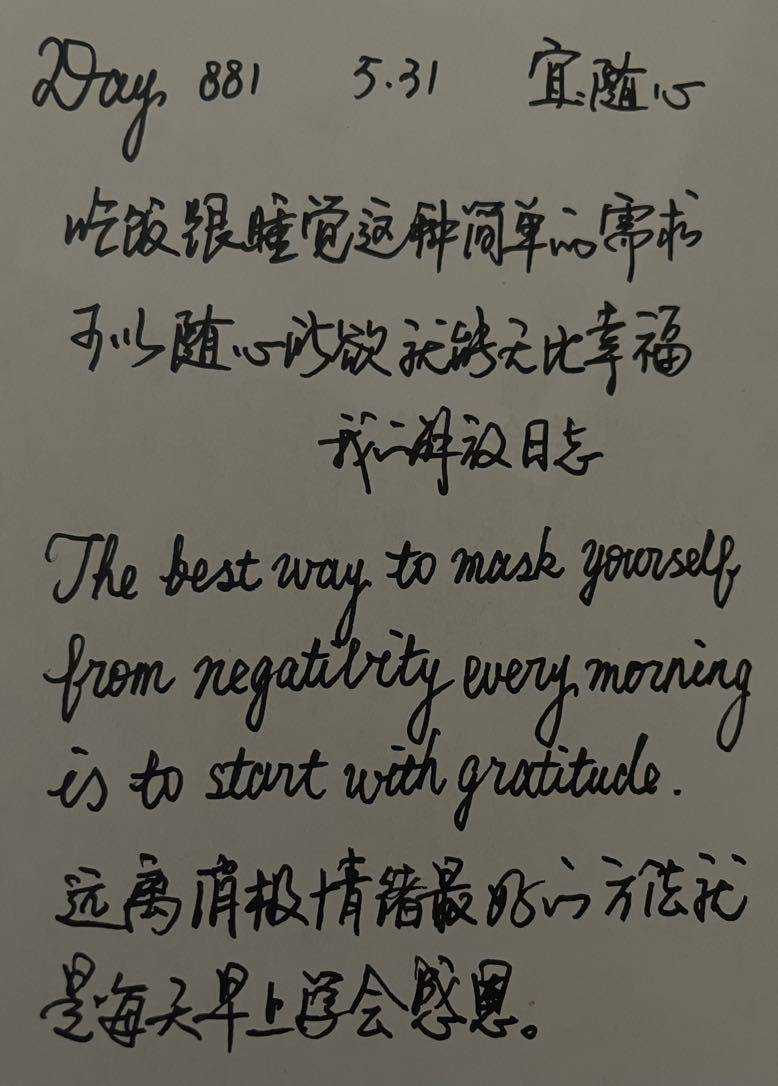 Day 881 5.31 宜:随心
吃饭跟睡觉这种简单的需求
可以随心所欲就能无比幸福
我的解放日志
The best way to mask yourself
from negativity every morning
is to start with gratitude.
远离消极情绪最好的方法就
是每天早上学会感恩。